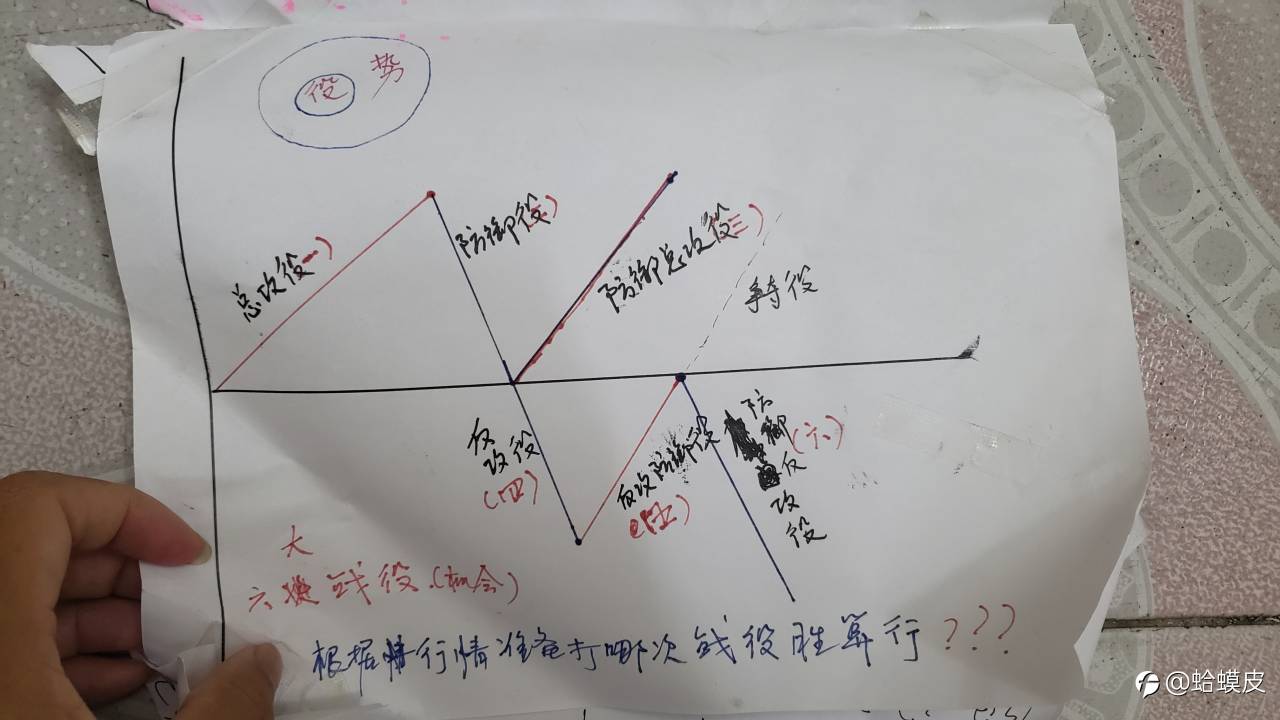 役 势
总攻役(一)
防御役(二)
防御总攻役(三)
争夺役
反攻役
(四)
反攻防御役
(五)
防御反攻役
(六)
大
六 战役(机会)
根据行情准备打哪次战役胜算行???
@蛤蟆皮